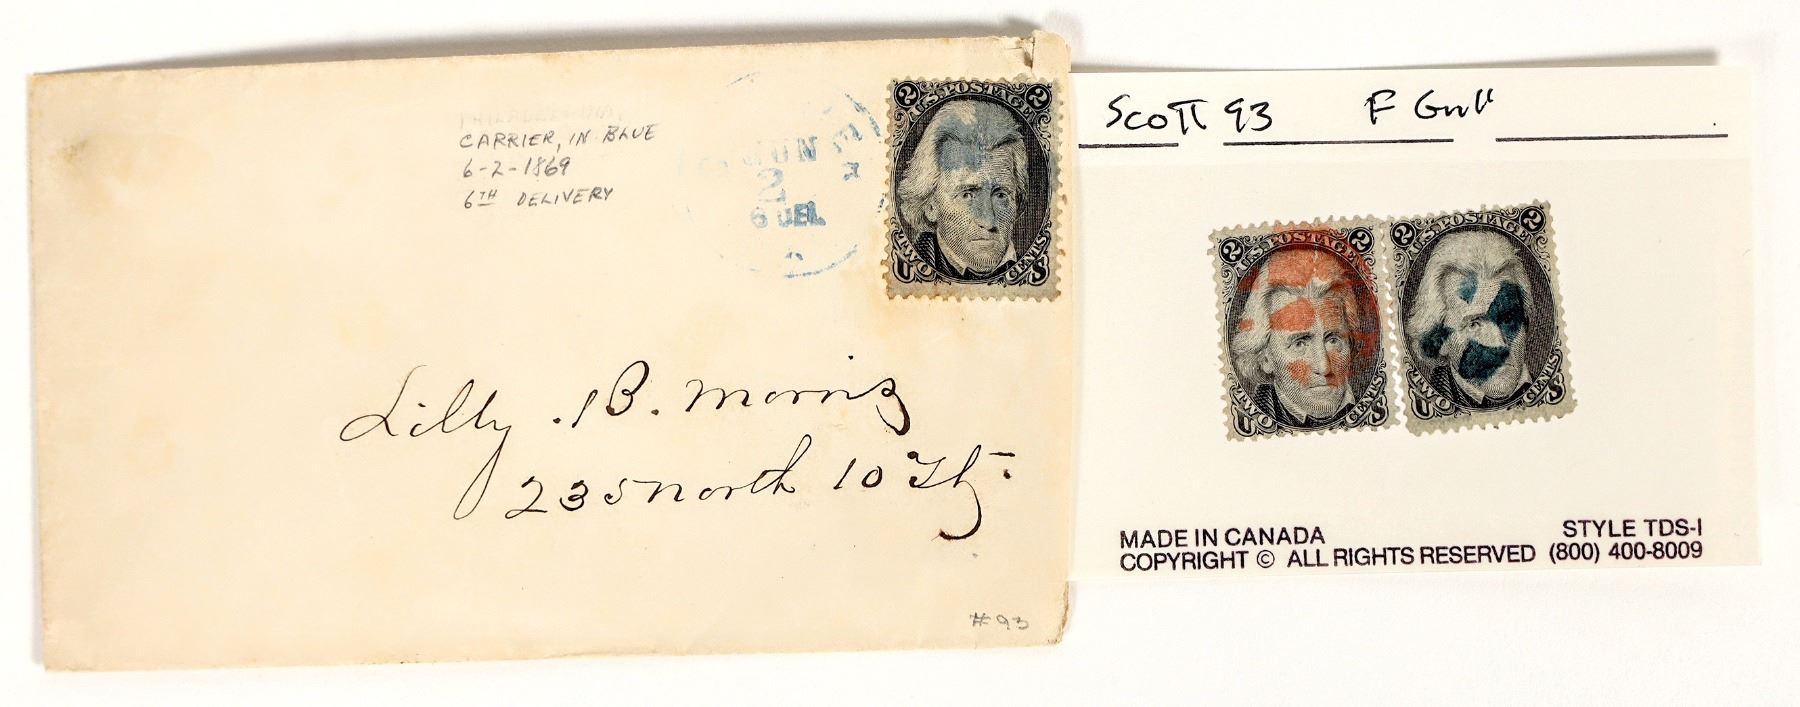 PHILADELPHIA,
CARRIER, IN BLUE
6-2-1869
6TH DELIVERY
JUN
2
6 DEL
2 U.S. POSTAGE 2
TWO CENTS
U S
Lilly B. Morris
235 North 10th St.
#93
Scott 93 F Grill
2 U.S. POSTAGE 2
TWO CENTS
U S
2 U.S. POSTAGE 2
TWO CENTS
U S
MADE IN CANADA STYLE TDS-1
COPYRIGHT © ALL RIGHTS RESERVED (800) 400-8009